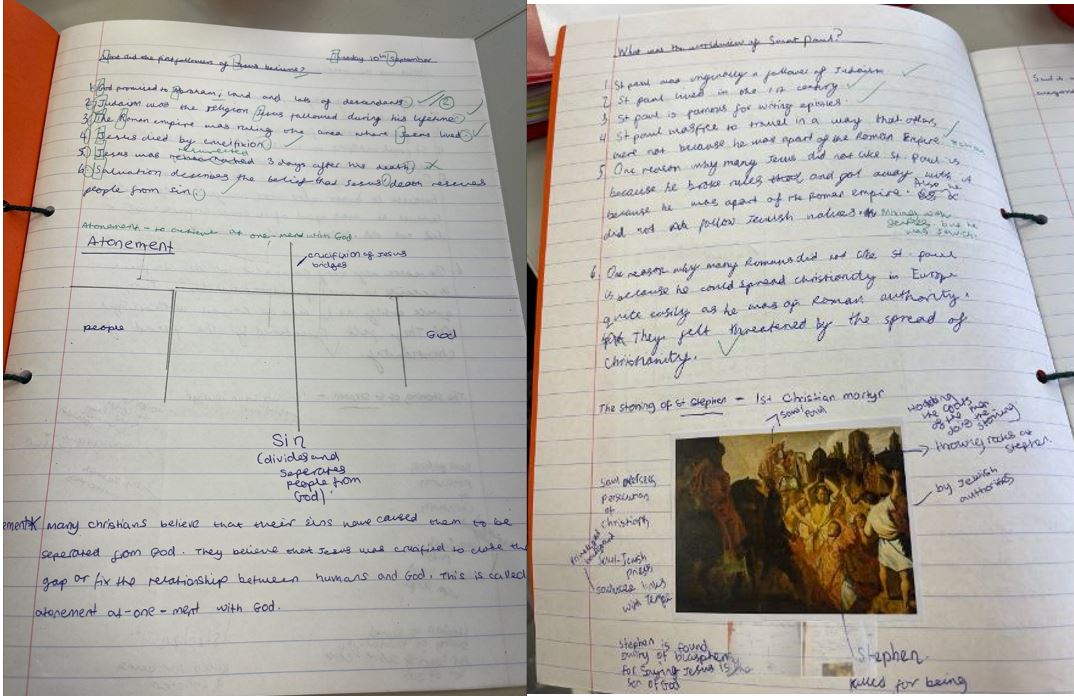 What did the first followers of Jesus believe?
Tuesday 10th September
1. God promised to Abraham, land and lots of descendants.
2. Judaism was the religion Jesus followed during his lifetime.
3. The Roman empire was ruling the area where Jesus lived.
4. Jesus died by crucifixion.
resurrected
5. Jesus was 3 days after his death.
6. Salvation describes the belief that Jesus' death
people from sin.
Atonement - to achieve at-one-ment with God
Atonement
crucifixion of Jesus
bridges
people
God
Sin
(divides and
seperates
people from
God).
many christians believe that their sins have caused them to be
seperated from God. They believe that Jesus was crucified to close the
gap or fix the relationship between humans and God. This is called
atonement at-one-ment with God.
What was the worldview of Saint Paul?
1. St paul was originally a follower of Judaism
2. St paul lived in the 1st century.
3. St paul is famous for writing epistles.
4. St paul was free to travel in a way that others
were not because he was apart of the Roman Empire.
5. One reason why many Jews did not like St. Paul is
because he broke rules and got away with it
because he was apart of the Roman empire. Also he
did not follow Jewish
Mixing with
gentiles but he
was Jewish.
6. One reason why many Romans did not like St. paul
is because he could spread christianity in Europe
quite easily as he was of Roman authority.
They felt threatened by the spread of
Christianity.
The stoning of St Stephen - 1st Christian martyr
Saul/Paul
Holding
the coats
of the men
doing the
stoning
throwing rocks at
Stephen.
by Jewish
authorities
Saul oversees
persecution
of
christians
Privileged
background
Saul-Jewish
priest
links
with Temple
Stephen is found
guilty of blasphemy
for saying Jesus is the
son of God
Stephen
killed for being